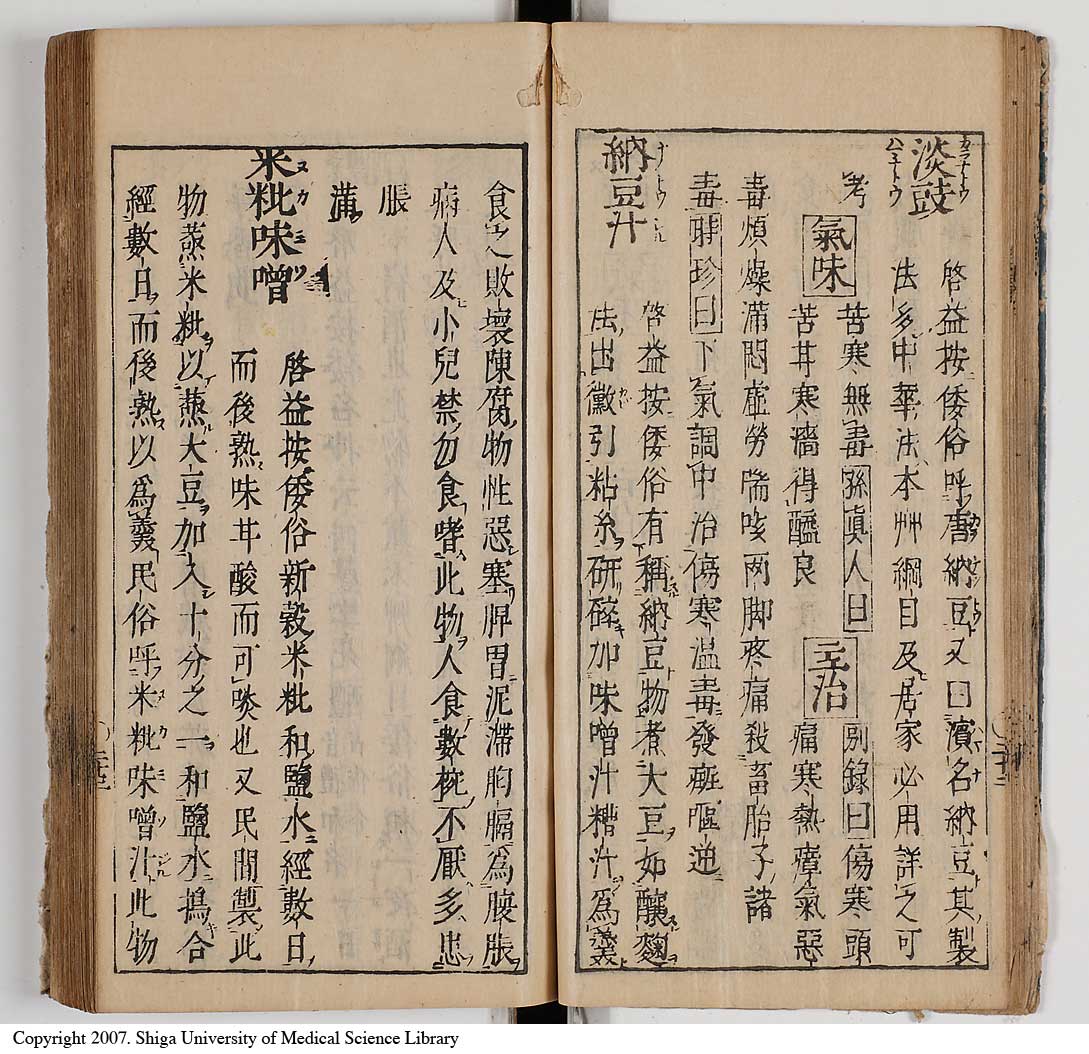 淡豉 カラナトウ ハマナトウ
啓益按倭俗呼唐納豆又曰濱名納豆其製
法多中華法本艸綱目及居家必用詳之可
考 氣味 苦寒無毒孫眞人曰
苦甘寒濇得醯良 主治 別錄曰傷寒頭
痛寒熱瘴氣惡
毒煩燥滿悶虛勞喘咳兩脚疼痛殺畜胎子諸
毒時珍曰下氣調中治傷寒溫毒發㾦嘔逆
納豆汁 ナトウ
啓益按倭俗有稱納豆物煮大豆如釀麴
法出黴引粘糸研碎加味噌汁糟汁爲羹
食之敗壞陳腐物性惡塞脾胃泥滯胸膈爲腹脹
病人及小兒禁勿食嗜此物人食數椀不厭多患
脹
滿
米粃味噌 ヌカミソ
啓益按倭俗新穀米粃和鹽水經數日
而後熟味甘酸而可啖也又民間製此
物蒸米粃以蒸大豆加入十分之一和鹽水搗合
經數日而後熟以爲羹民俗呼米粃味噌汁此物
Copyright 2007. Shiga University of Medical Science Library